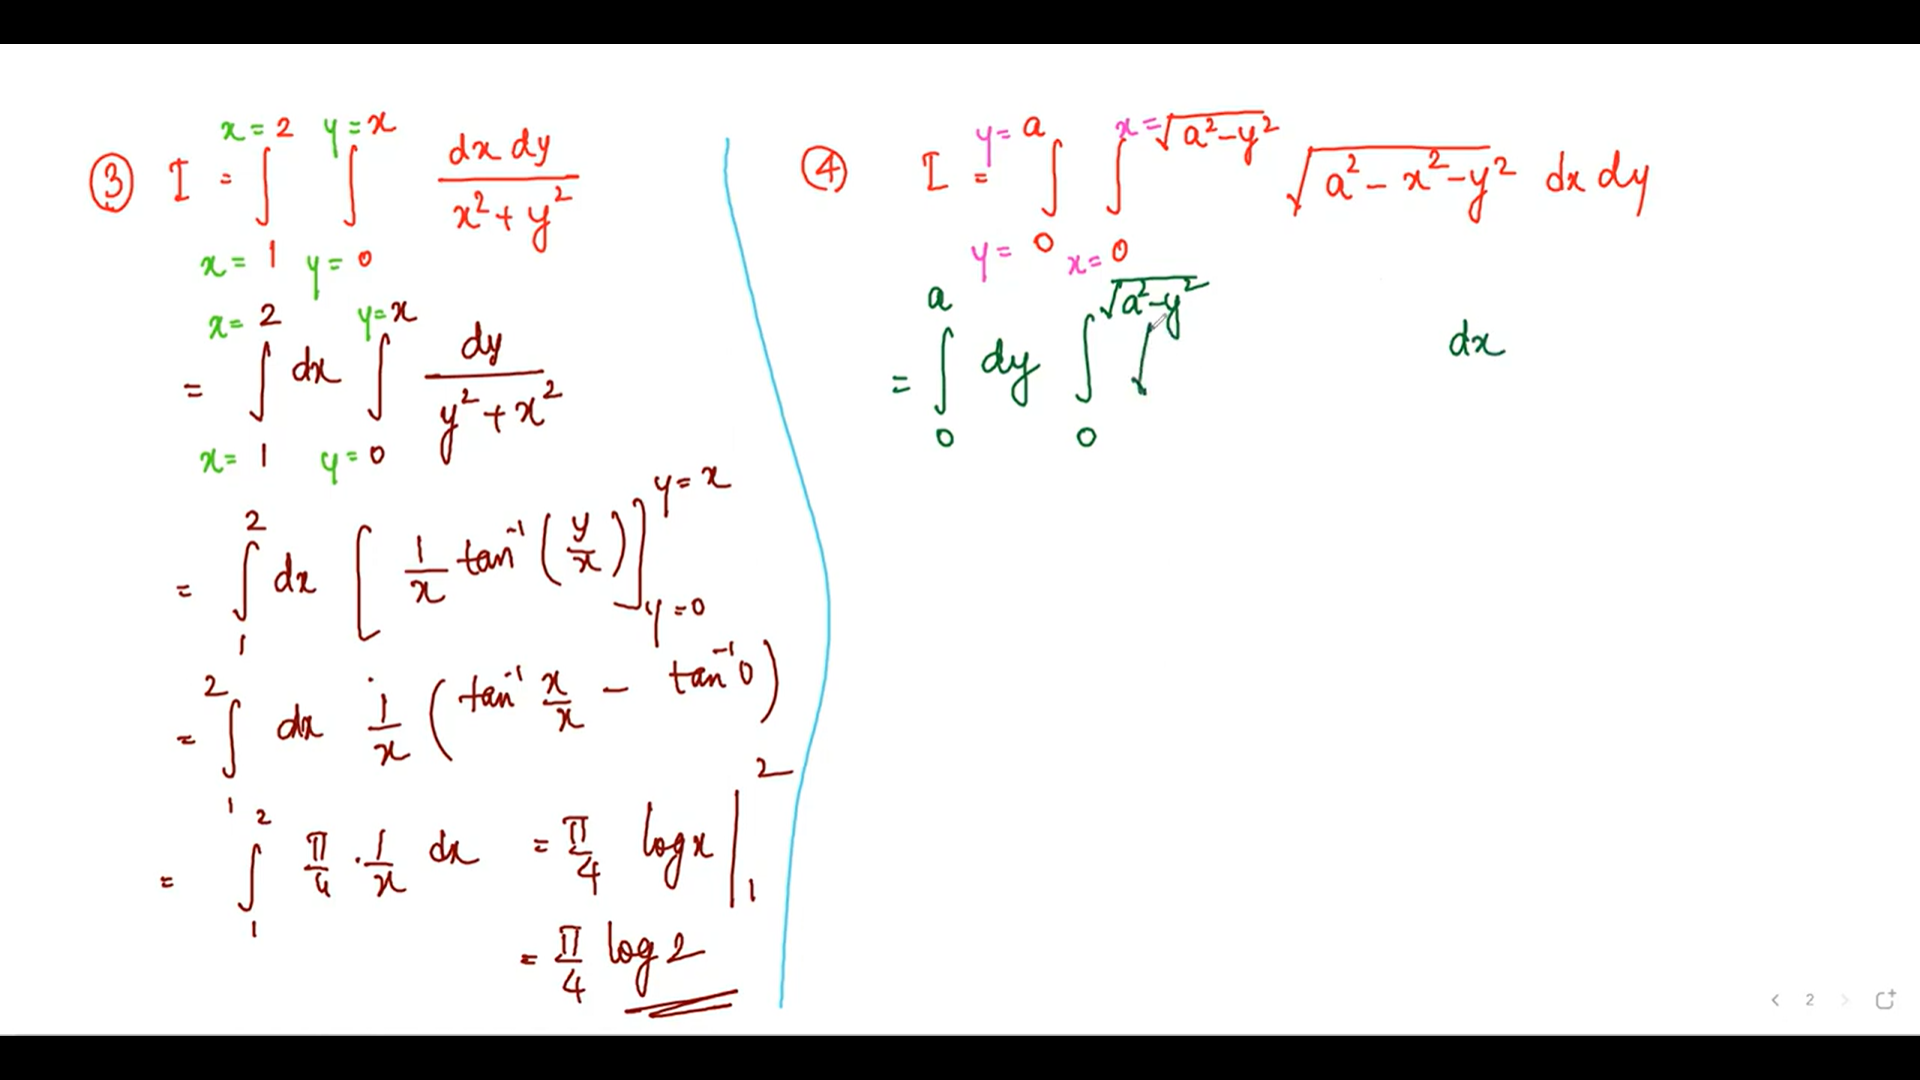 ③ I = ∫_{x=1}^{x=2} ∫_{y=0}^{y=x} dx dy / (x² + y²)
= ∫_{x=1}^{x=2} dx ∫_{y=0}^{y=x} dy / (y² + x²)
= ∫_1^2 dx [ 1/x tan⁻¹ (y/x) ]_{y=0}^{y=x}
= ∫_1^2 dx 1/x ( tan⁻¹ x/x − tan⁻¹ 0 )
= ∫_1^2 π/4 · 1/x dx = π/4 log x |_1^2
= π/4 log 2
④ I = ∫_{y=0}^{y=a} ∫_{x=0}^{x=√(a²−y²)} √(a² − x² − y²) dx dy
= ∫_0^a dy ∫_0^{√(a²−y²)} √ dx
2